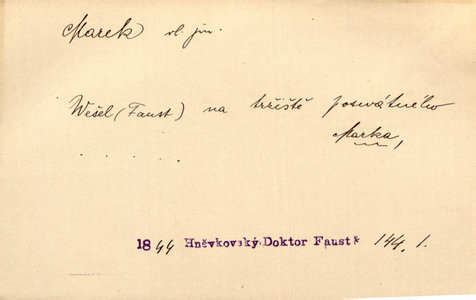 Marek vl. jm.
Wešel (Faust) na tržiště posvátného
Marka,
. . . . .
1844 Hněvkovský, Doktor Faust 144, 1.